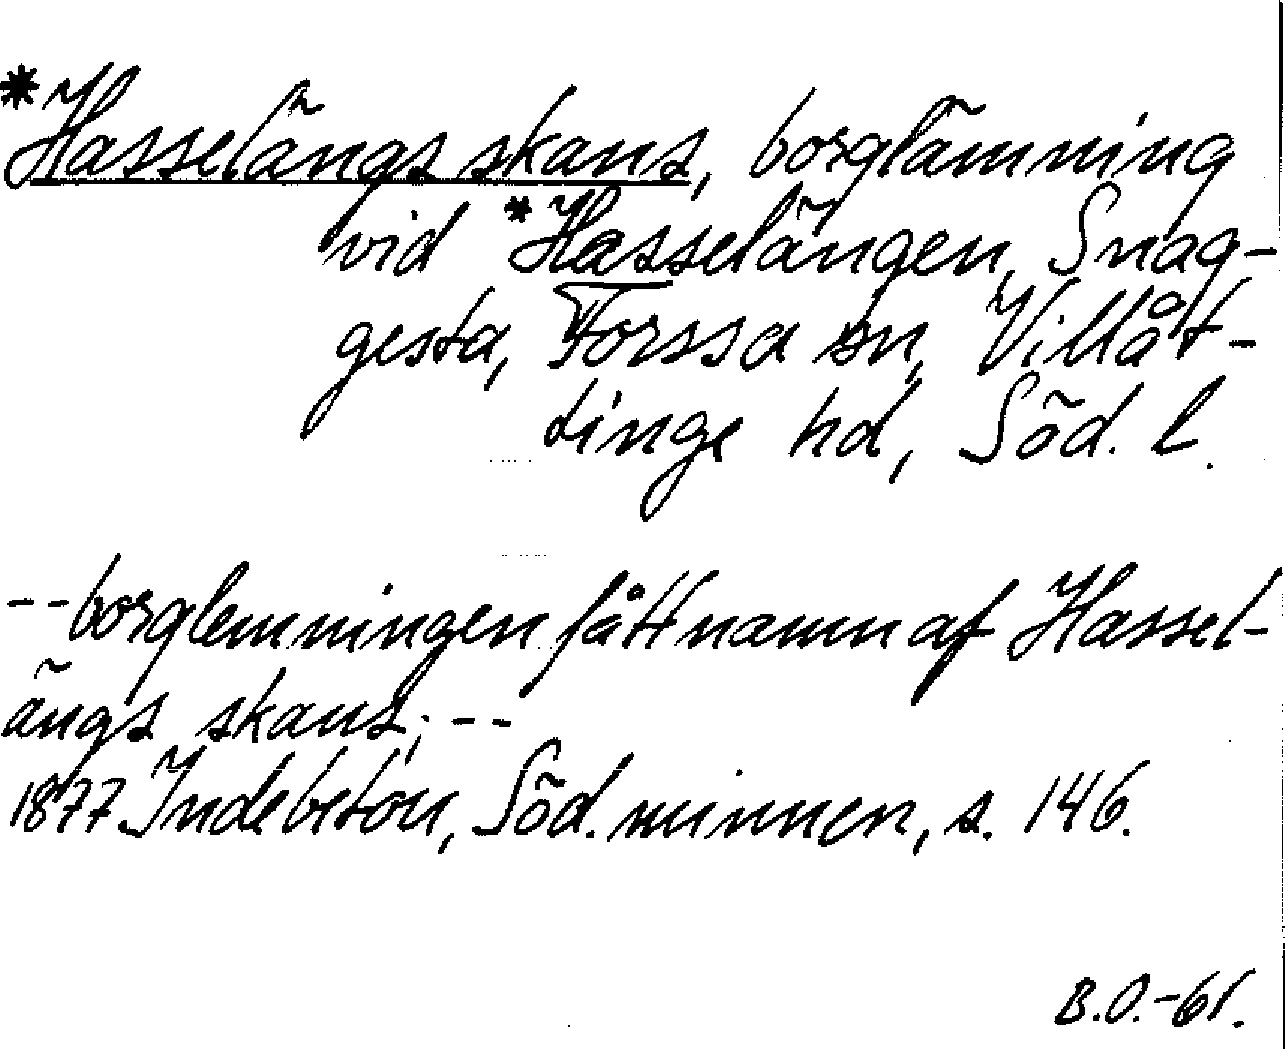 *Hasselängs skans, borglämning
vid *Hasselängen, Snag-
gesta, Forssa sn, Villåt-
tinge hd, Söd. l.
--borglemningen fått namn af Hassel-
ängs skans; --
1877 Indebetou, Söd. minnen, s. 146.
B.O.-61.